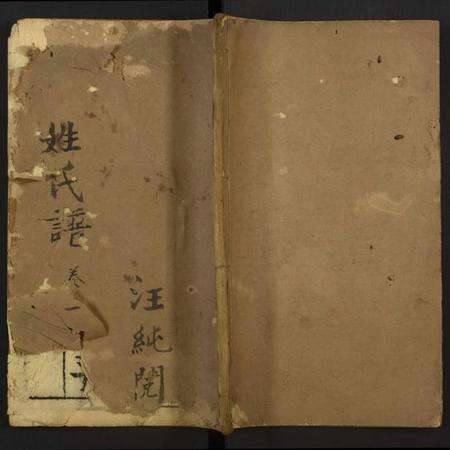 姓氏譜 卷一
汪純閱